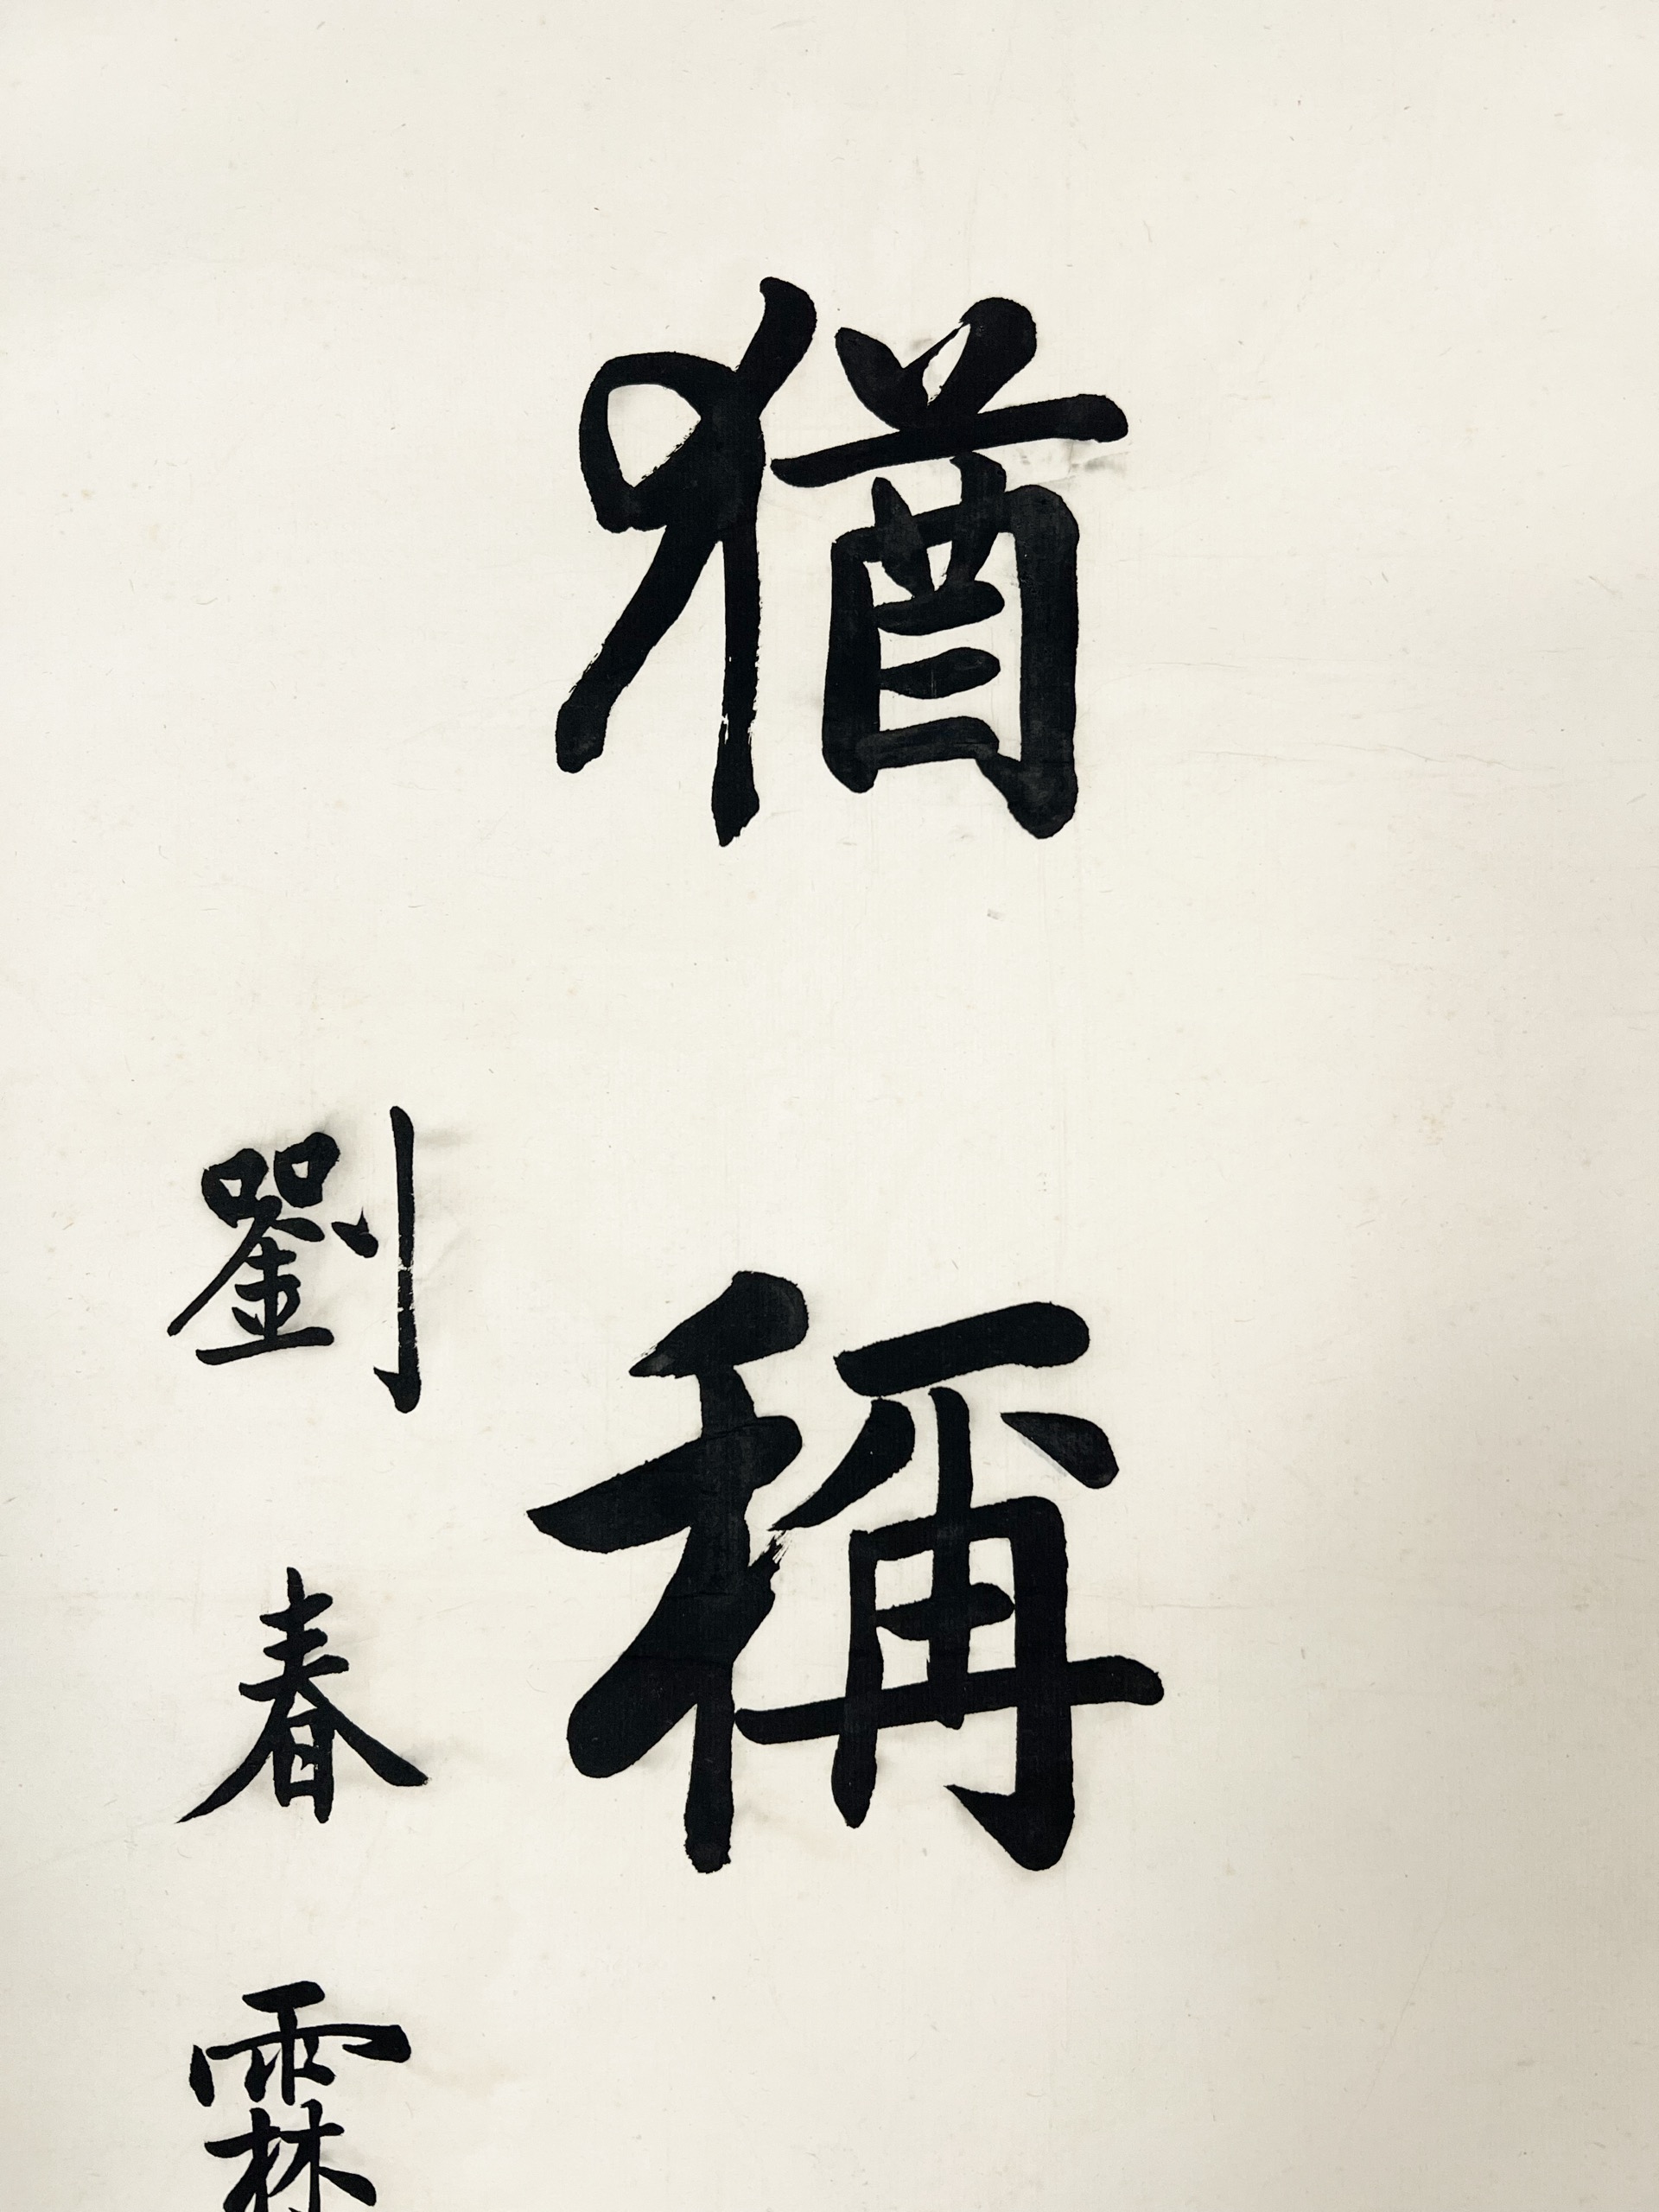 猶稱
劉春霖